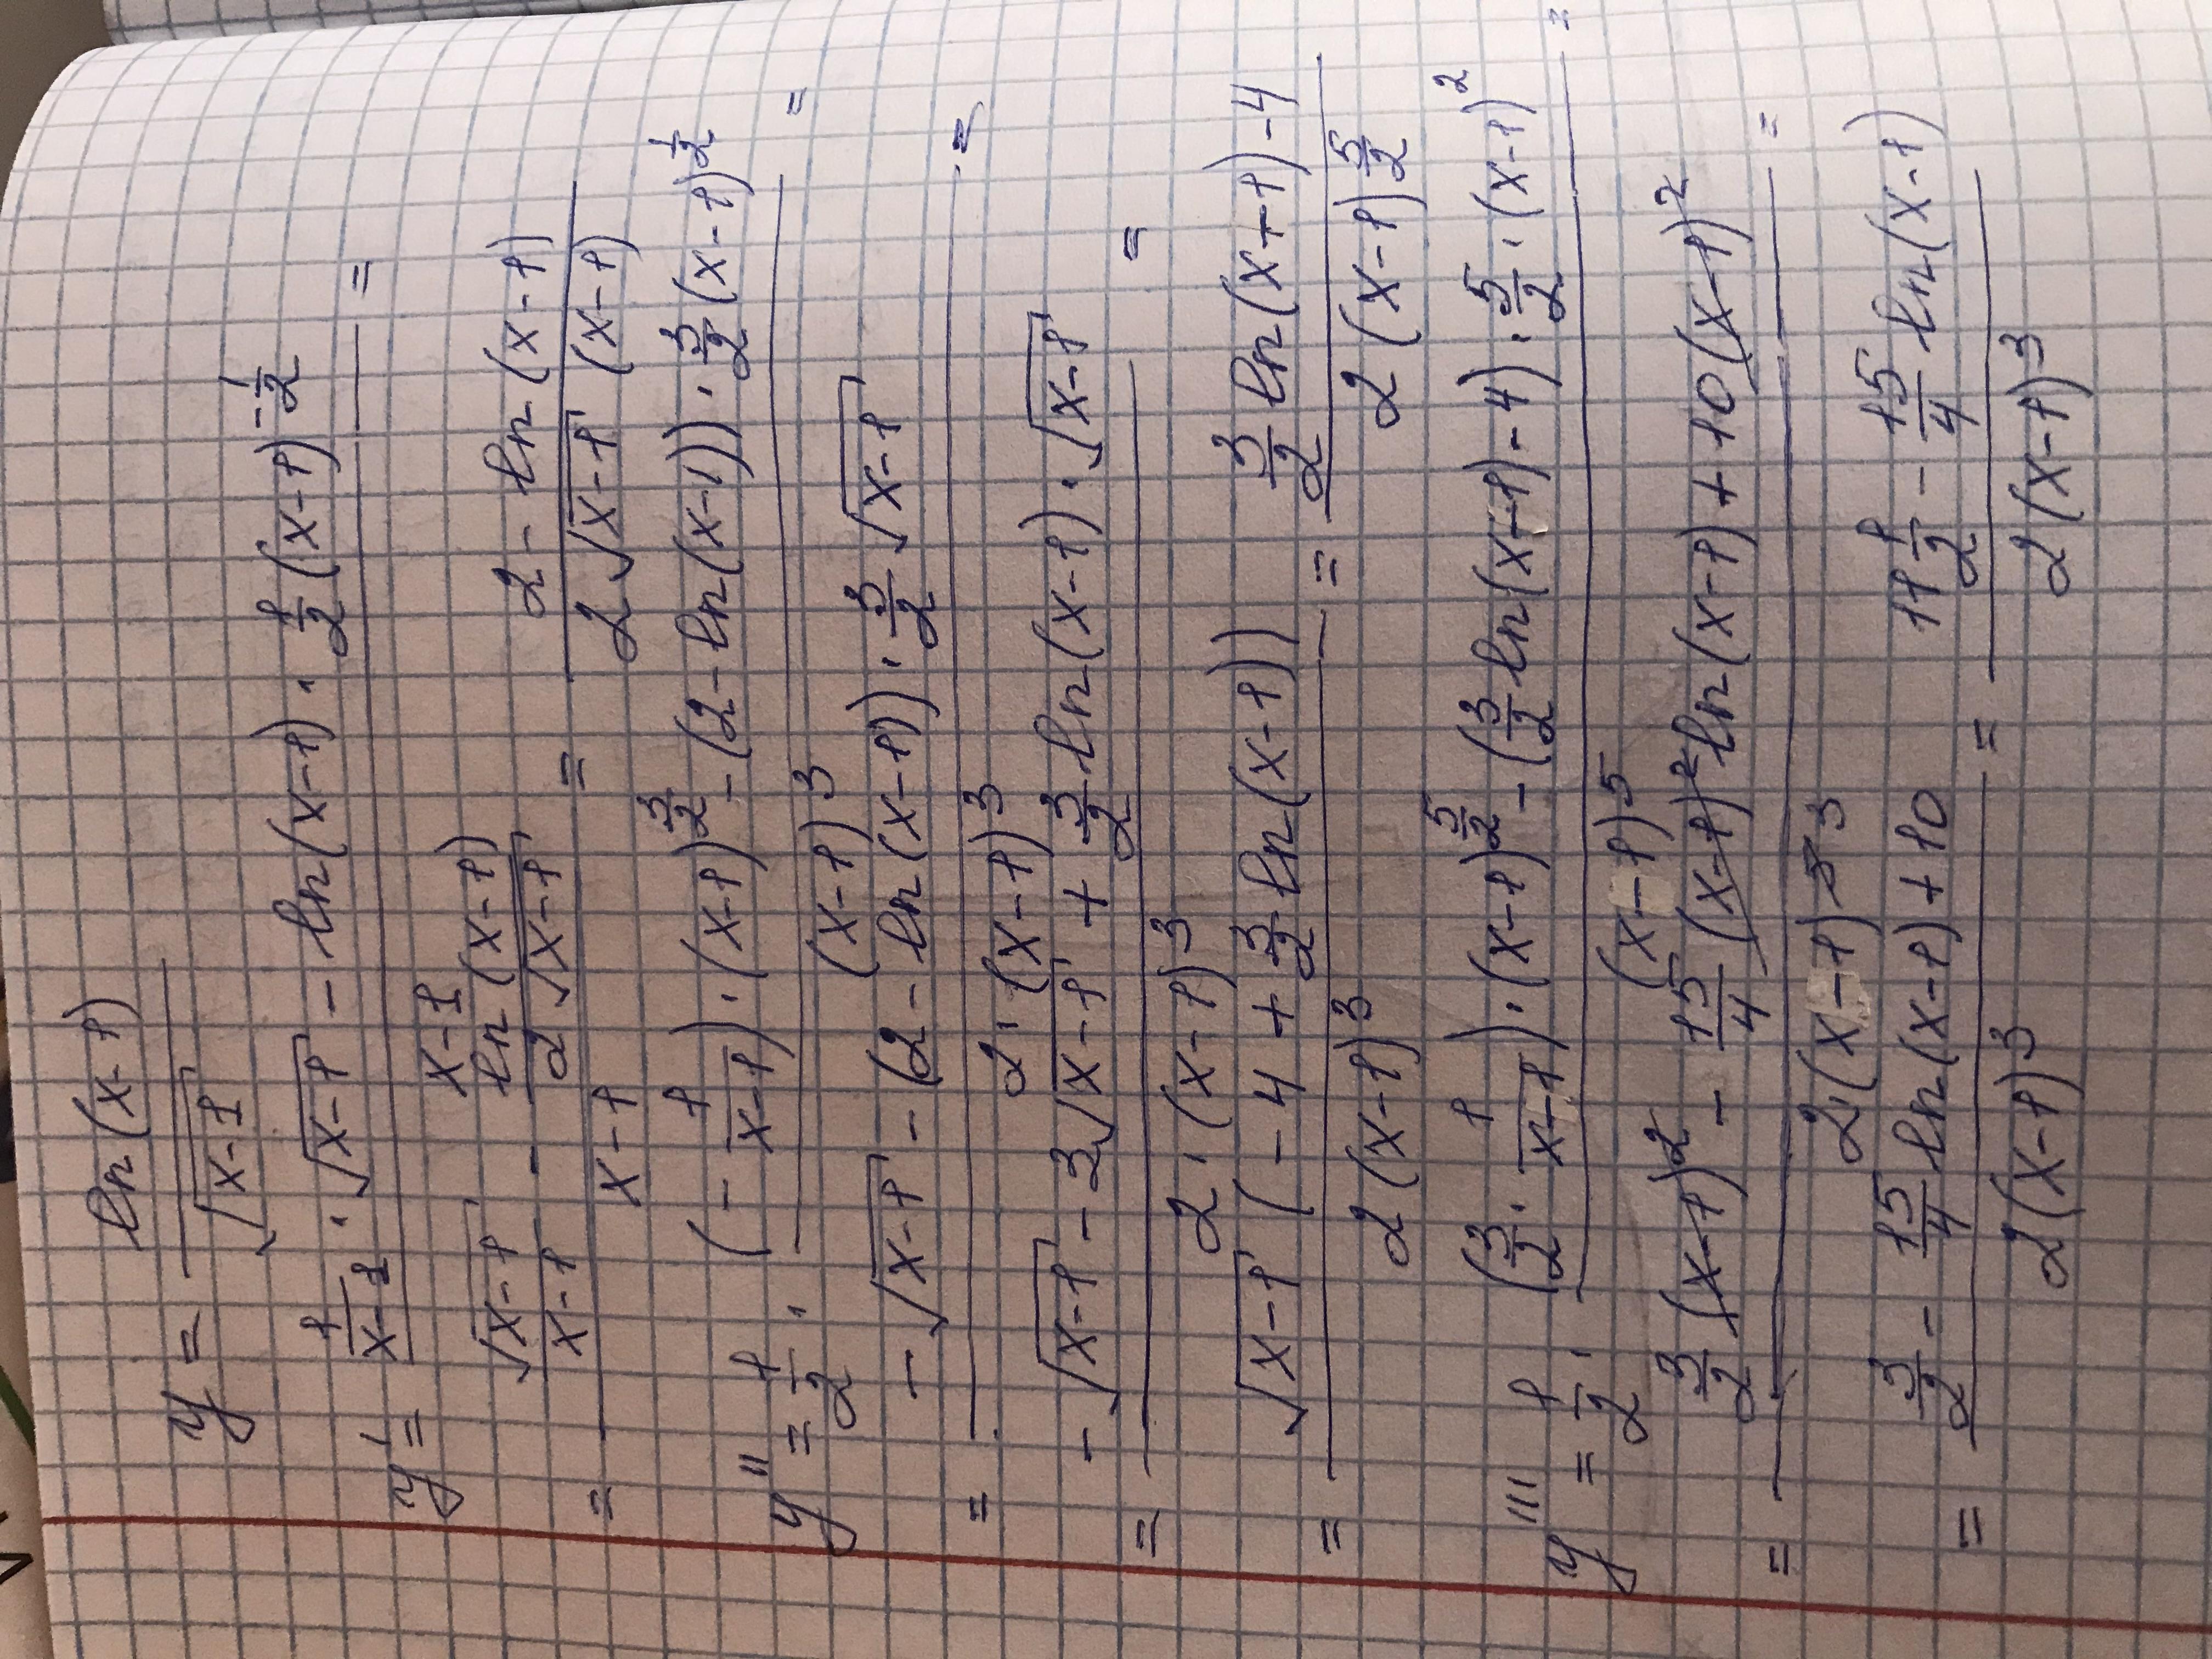 y = ln(x-1) / √(x-1)
y' = (1/(x-1) · √(x-1) - ln(x-1) · 1/2 (x-1)^(-1/2)) / (x-1) =
= (√(x-1)/(x-1) - ln(x-1)/(2√(x-1))) / (x-1) = (2 - ln(x-1)) / (2√(x-1) (x-1))
y'' = 1/2 · ((- 1/(x-1)) · (x-1)^(3/2) - (2 - ln(x-1)) · 3/2 (x-1)^(1/2)) / (x-1)^3 =
= (- √(x-1) - (2 - ln(x-1)) · 3/2 √(x-1)) / (2 · (x-1)^3) =
= (- √(x-1) - 3√(x-1) + 3/2 ln(x-1) · √(x-1)) / (2 · (x-1)^3) =
= (√(x-1) (- 4 + 3/2 ln(x-1))) / (2(x-1)^3) = (3/2 ln(x-1) - 4) / (2(x-1)^(5/2))
y''' = 1/2 · ((3/2 · 1/(x-1)) · (x-1)^(5/2) - (3/2 ln(x-1) - 4) · 5/2 · (x-1)^2) / (x-1)^5 =
= (3/2 (x-1)^2 - 15/4 (x-1)^2 ln(x-1) + 10(x-1)^2) / (2(x-1)^3) =
= (3/2 - 15/4 ln(x-1) + 10) / (2(x-1)^3) = (11 1/2 - 15/4 ln(x-1)) / (2(x-1)^3)